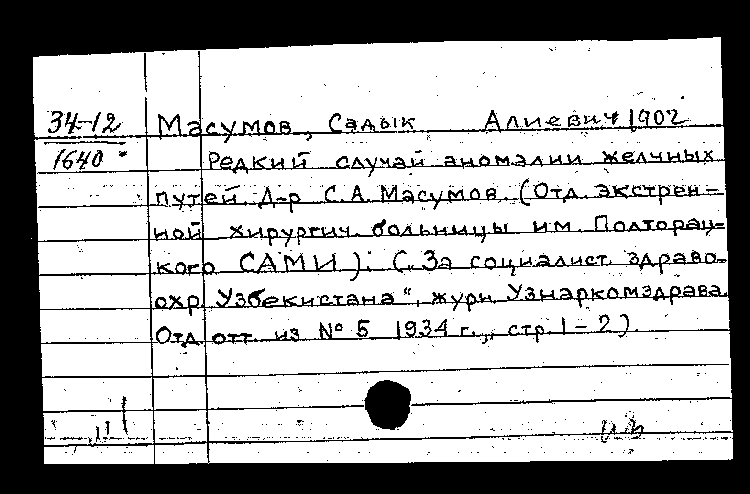 34-12 Масумов, Садык Алиевич 1902
1640 Редкий случай аномалии желчных
путей. Д-р С.А. Масумов. (Отд. экстрен-
ной хирургич. больницы им. Полторац-
кого САМИ). („За социалист. здраво-
охр. Узбекистана", журн. Узнаркомздрава.
Отд. отт. из № 5 1934 г., стр. 1-2).